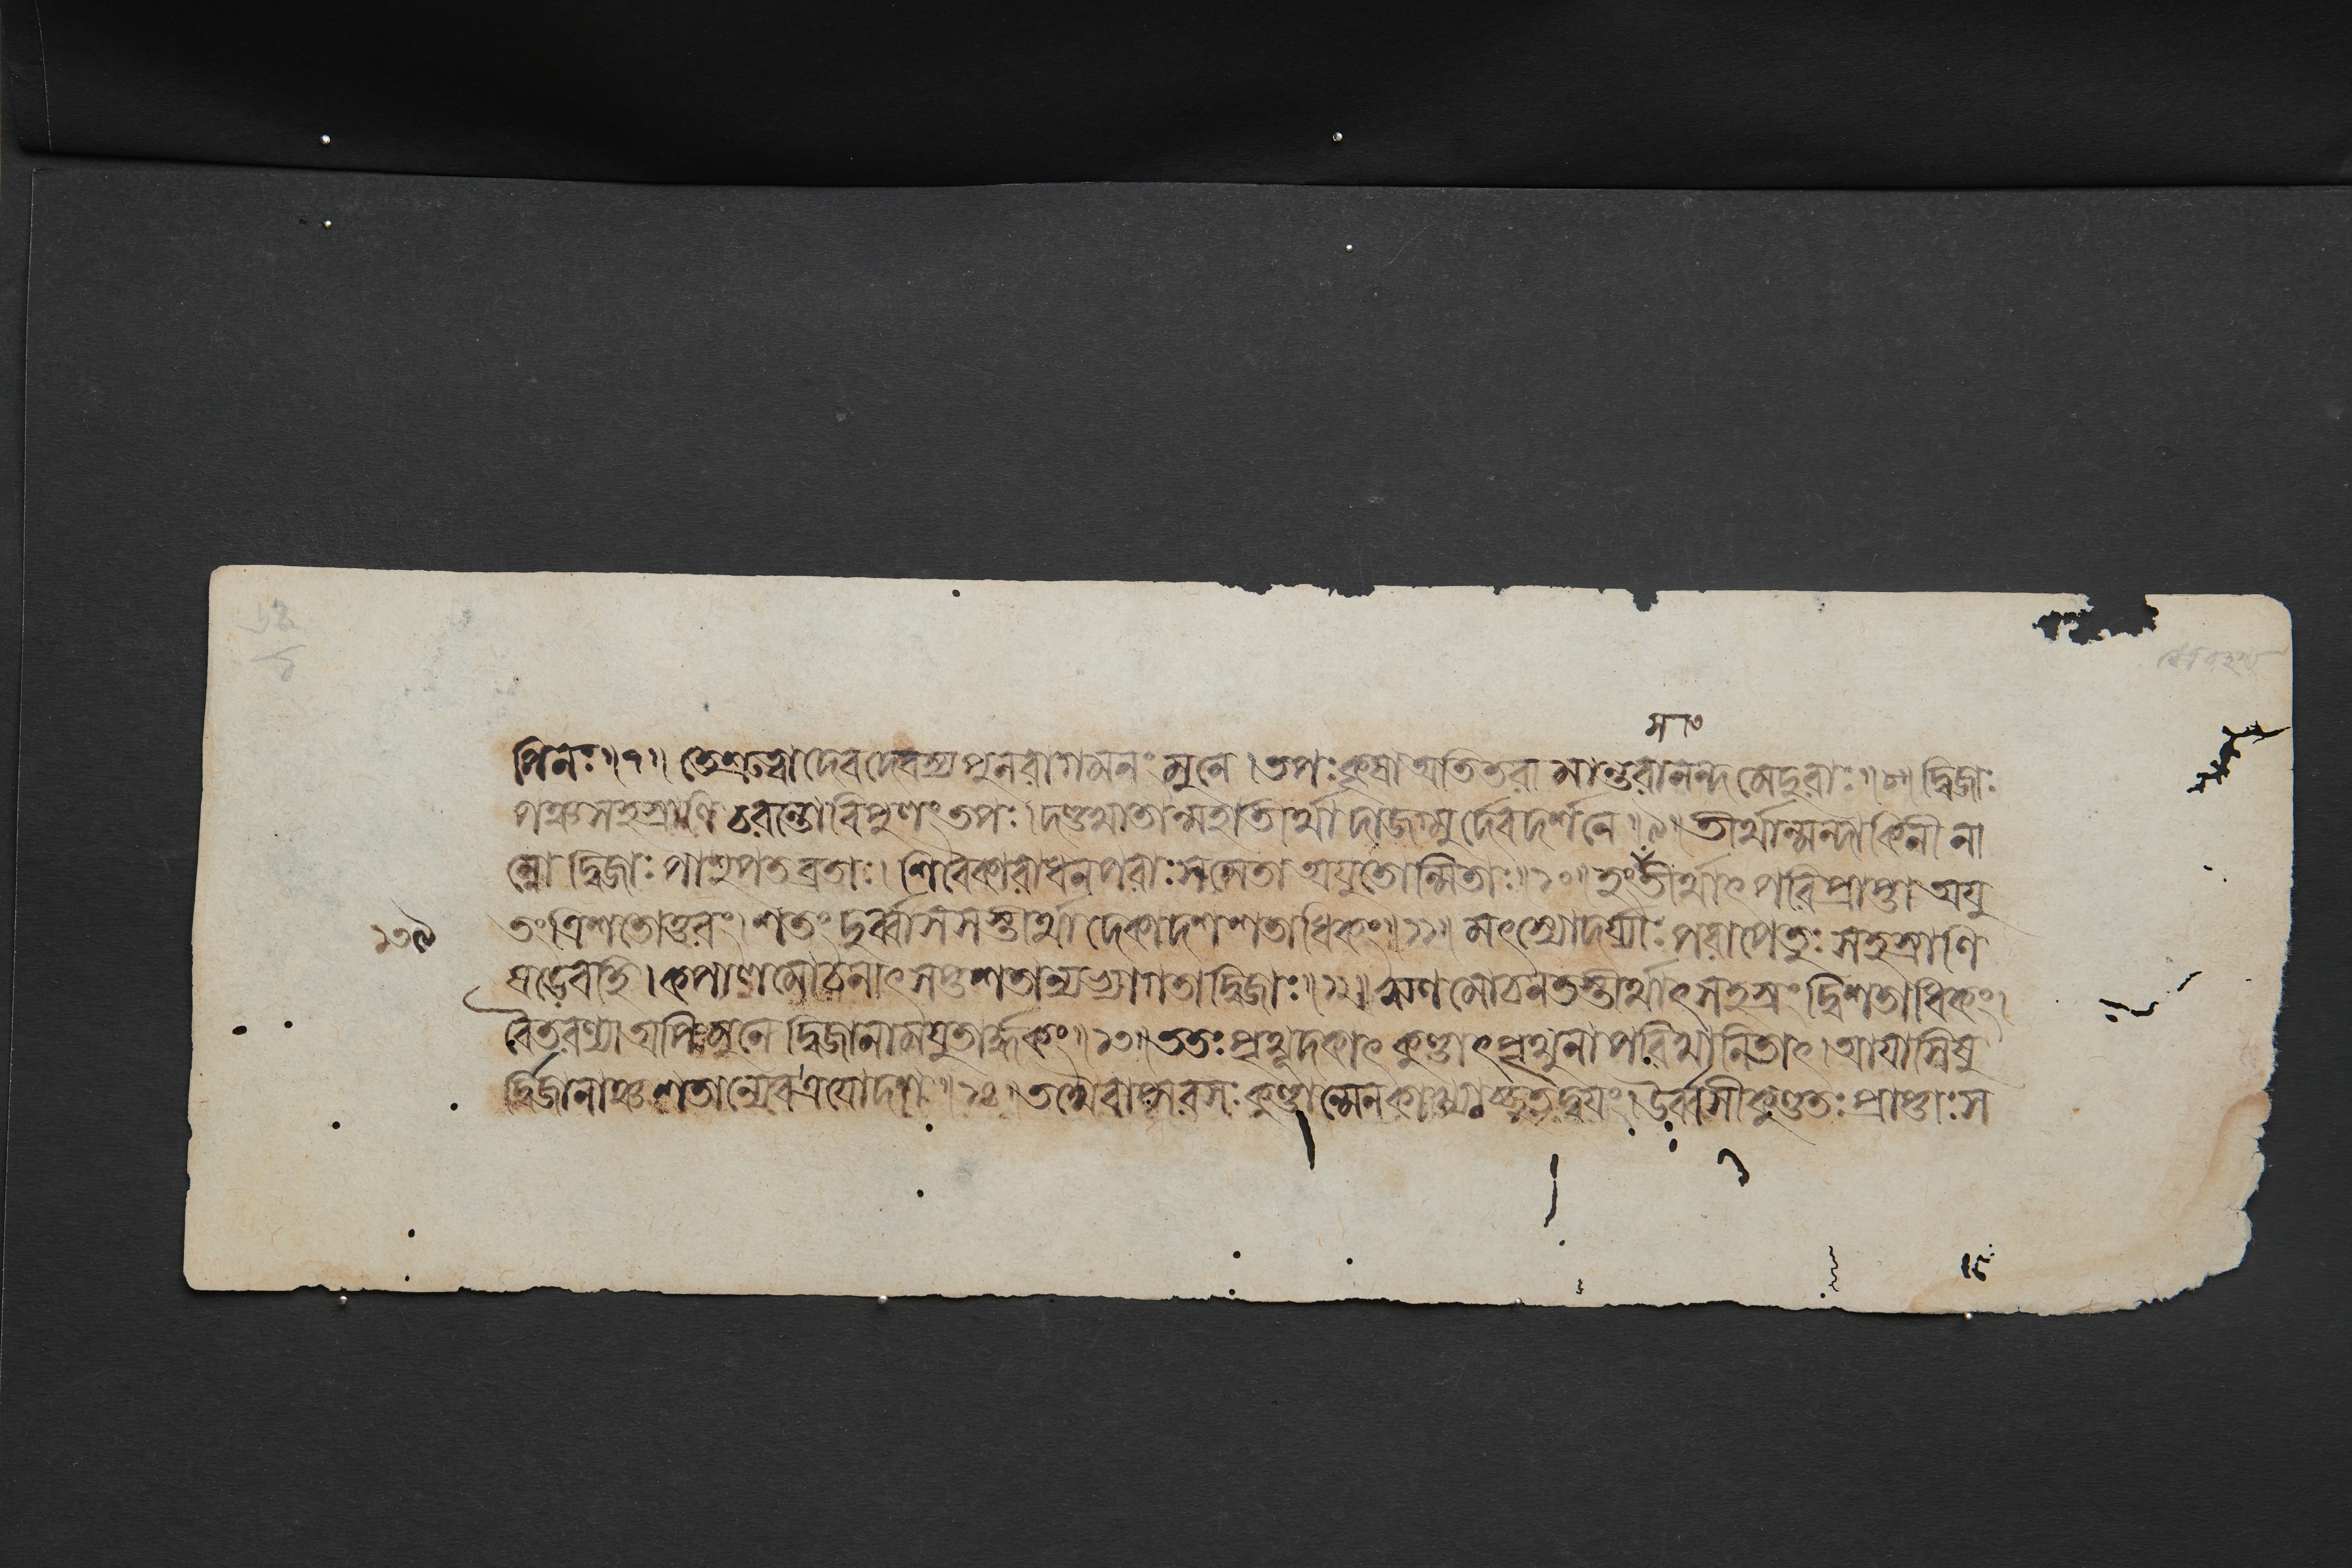 সাং
পিনঃ॥৭॥ তেশ্রুত্বাদেবদেবস্য পুনরাগমনং মুনে। তপঃকৃষা অতিতরা মান্তরানন্দমেদুরাঃ॥৮॥ দ্বিজাঃ
পঞ্চসহস্রাণি চরন্তোবিপুণং তপঃ। দণ্ডখাতান্মহাতীর্থা দাজগ্মুর্দেবদর্শনে॥৯॥ তীর্থান্মন্দাকিনীনা
ম্নো দ্বিজাঃ পাশুপতব্রতাঃ। শিবৈকারাধনপরাঃ সমেতা অযুতোন্মিতাঃ॥১০॥ হংতীর্থাৎ পরিপ্রাপ্তা অযু
তং ত্রিশতোত্তরং। শতং দুর্ব্বাসসস্তীর্থা দেকাদশশতাধিকং॥১১॥ মৎস্যোদর্য্যাঃ পরাপেতুঃ সহস্রাণি
১৩৯
ষডেবহি। কপালমোচনাৎ সপ্তশতান্যভ্যাগতাদ্বিজাঃ॥১২॥ ঋণমোচনতস্তীর্থাৎ সহস্রং দ্বিশতাধিকং।
বৈতরণ্যা অপি মুনে দ্বিজানামযুতার্দ্ধকং॥১৩॥ ততঃ পৃথূদকাৎ কুণ্ডাৎ পৃথুনা পরিখানিতাৎ। আযাসিষু
র্দ্বিজানাঞ্চ শতান্যেবত্রযোদশ॥১৪॥ তথৈবাপ্সরসঃ কুণ্ডান্মেনকাখ্যাচ্ছতদ্বযং। উর্ব্বসীকুণ্ডতঃ প্রাপ্তাঃ স